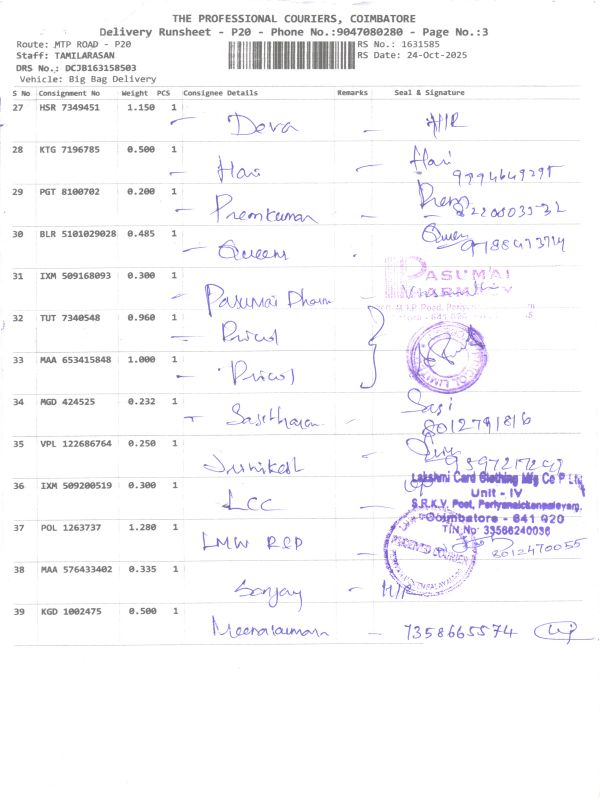 THE PROFESSIONAL COURIERS, COIMBATORE
Delivery Runsheet - P20 - Phone No.:9047080280 - Page No.:3
Route: MTP ROAD - P20
Staff: TAMILARASAN
DRS No.: DCJB163158503
Vehicle: Big Bag Delivery
RS No.: 1631585
RS Date: 24-Oct-2025
S No Consignment No Weight PCS Consignee Details Remarks Seal & Signature
27 HSR 7349451 1.150 1
Deva
28 KTG 7196785 0.500 1
Hari Hari
29 PGT 8100702 0.200 1
Premkumar
30 BLR 5101029028 0.485 1
Queens
31 IXM 509168093 0.300 1
Pasumai Pharm
PASUMAI
PHARMACY
32 TUT 7340548 0.960 1
Pricol
33 MAA 653415848 1.000 1
Pricol
34 MGD 424525 0.232 1
Sasitharan Sasi
8012791816
35 VPL 122686764 0.250 1
36 IXM 509200519 0.300 1
LCC
Lakshmi Card Clothing Mfg Co P Ltd
Unit - IV
S.R.K.V. Post, Periyanaickenpalayam,
Coimbatore - 641 020
TIN No 33566240036
37 POL 1263737 1.280 1
LMW
8012470055
38 MAA 576433402 0.335 1
Sanjay
39 KGD 1002475 0.500 1
Meenakumari 7358665574